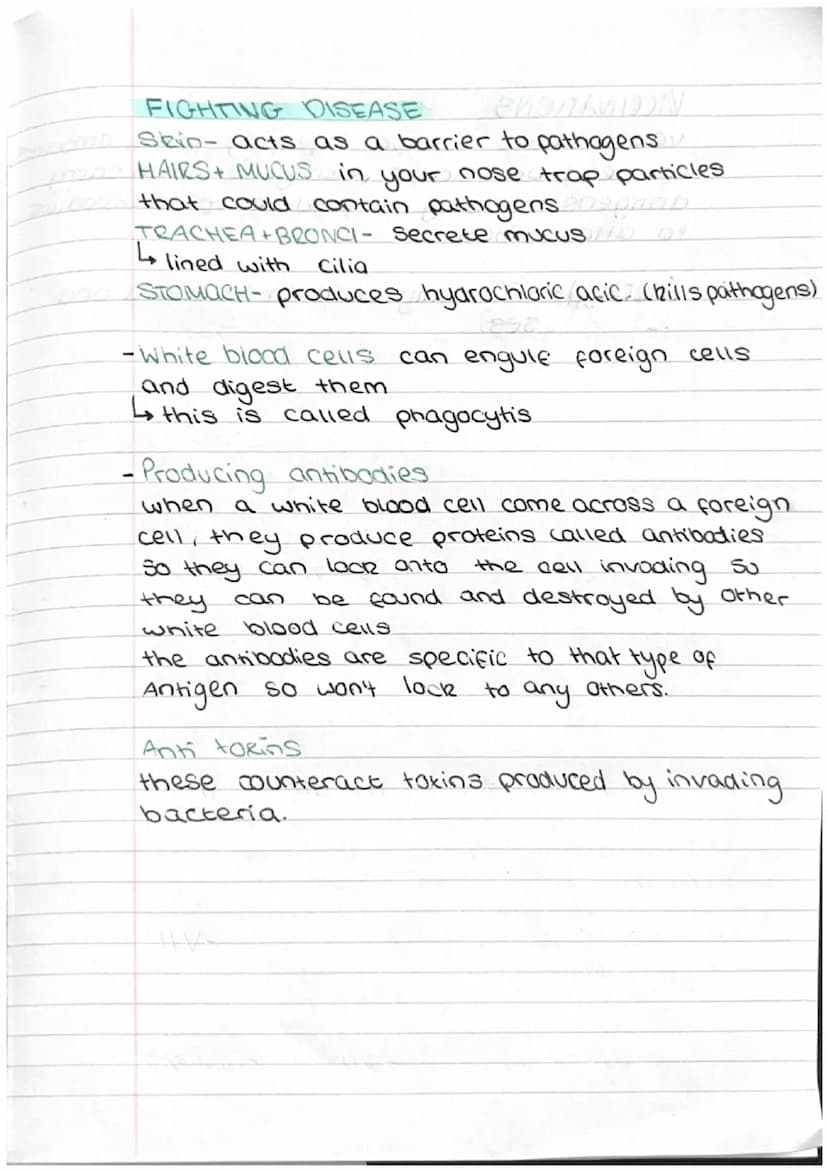 FIGHTING DISEASE
Skin- acts as a barrier to pathogens
HAIRS + MUCUS in your nose trap particles
that could contain pathogens
TRACHEA + BRONCI- Secrete mucus
↳ lined with cilia
STOMACH- produces hydrochloric acic. (kills pathogens)
- White blood cells can engulf foreign cells
and digest them
↳ this is called phagocytis
- Producing antibodies
when a white blood cell come across a foreign
cell, they produce proteins called antibodies
so they can lock onto the cell invading so
they can be found and destroyed by other
white blood cells
the antibodies are specific to that type of
Antigen so won't lock to any others.
Anti toxins
these counteract toxins produced by invading
bacteria.